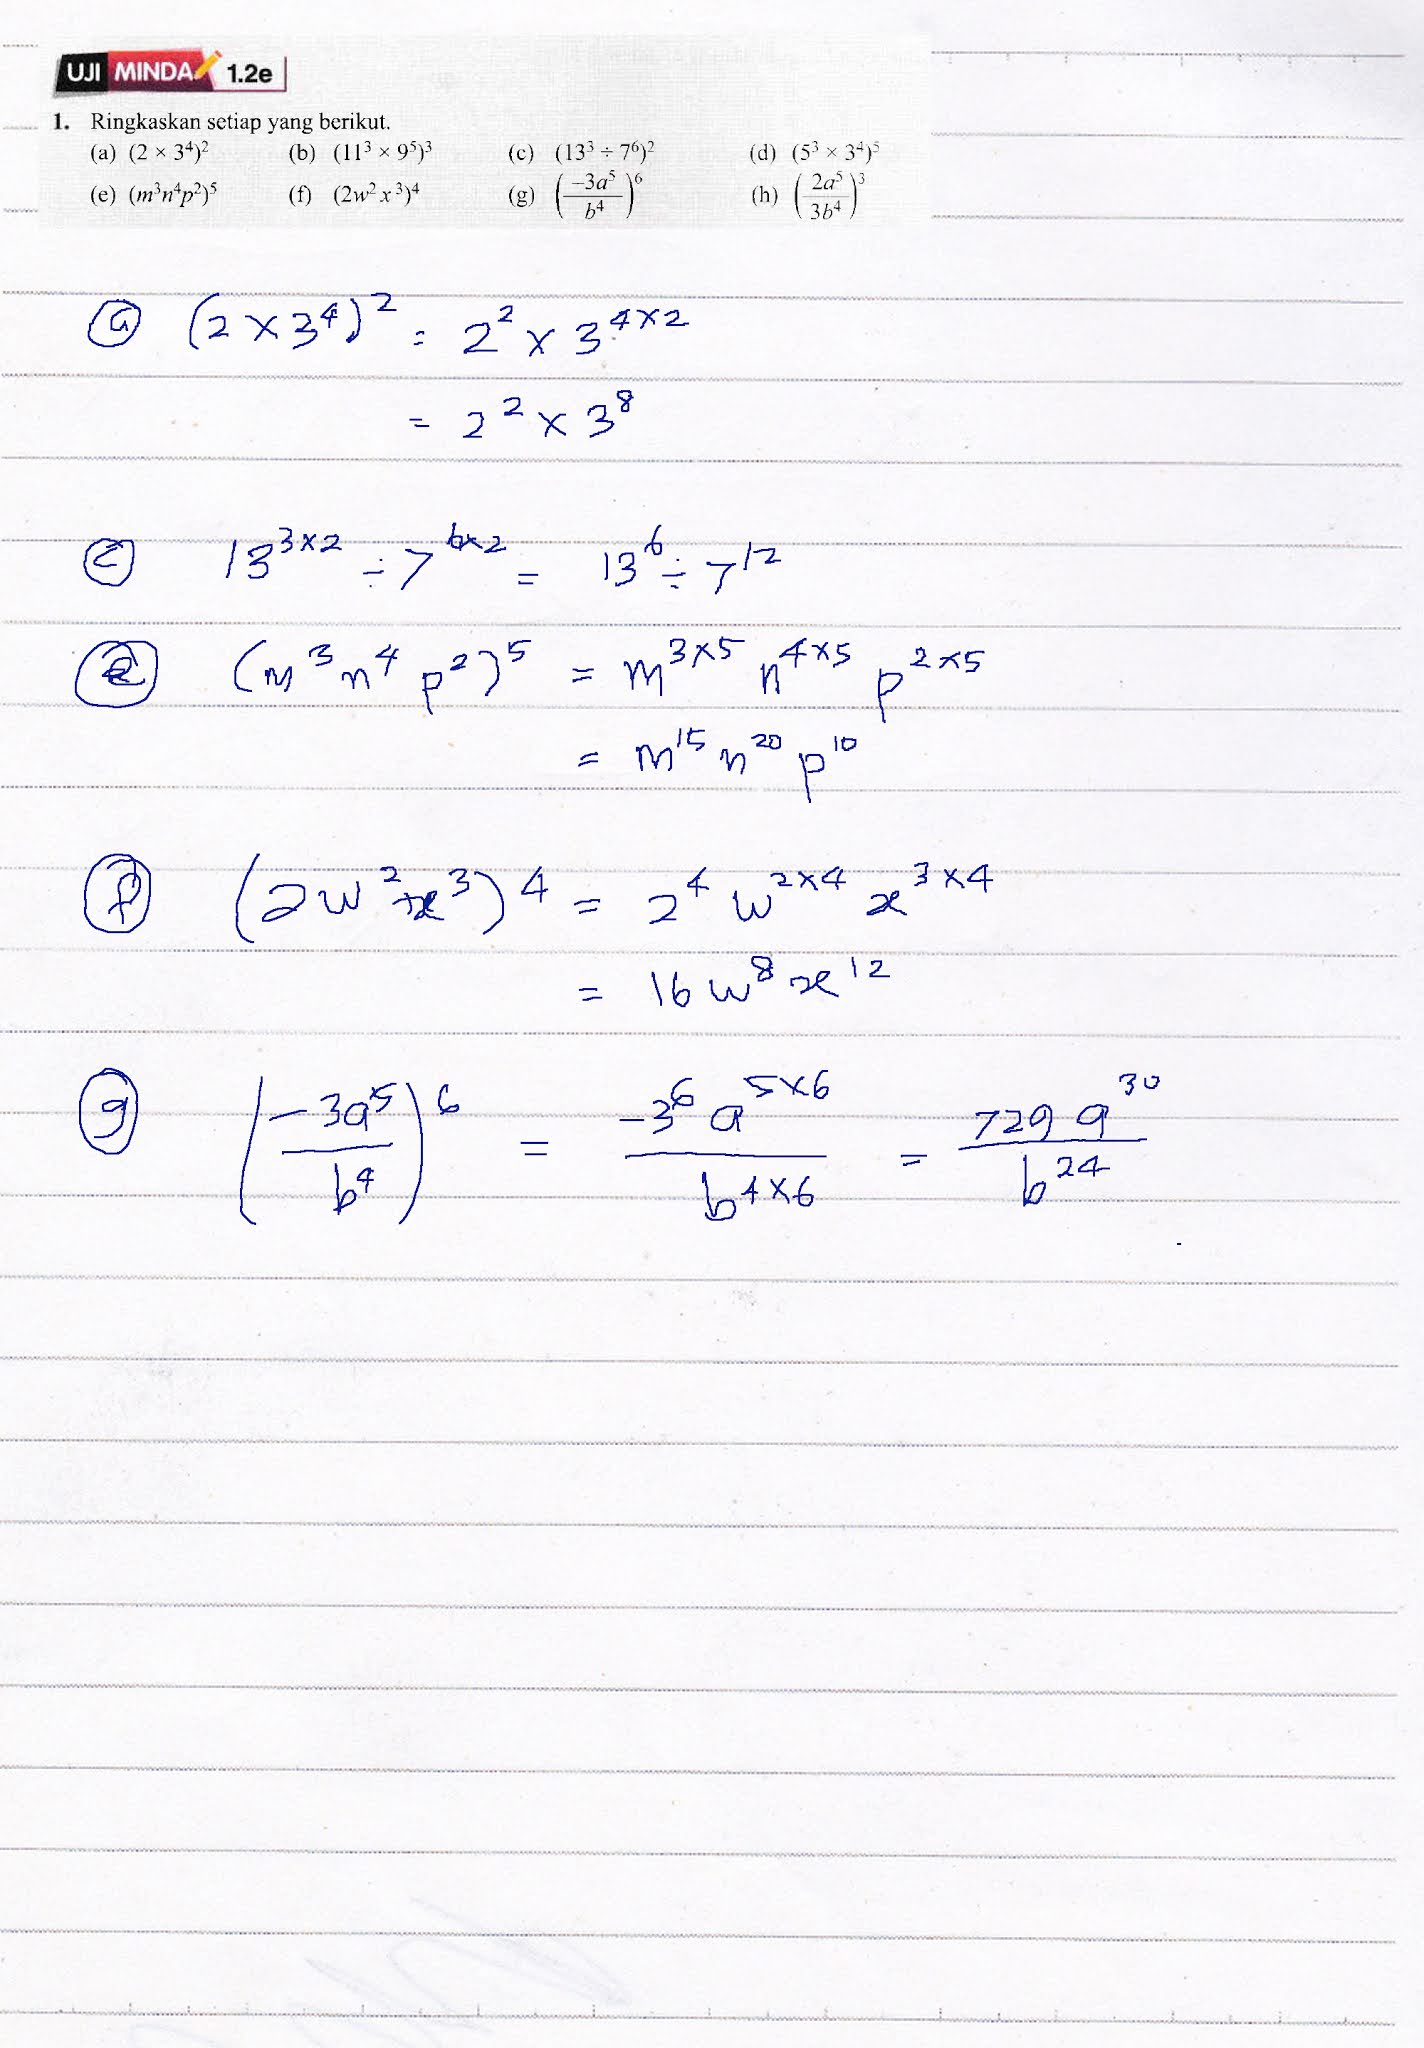 UJI MINDA 1.2e
1. Ringkaskan setiap yang berikut.
(a) (2 × 3⁴)² (b) (11³ × 9⁵)³ (c) (13³ ÷ 7⁶)² (d) (5³ × 3⁴)⁵
(e) (m³n⁴p²)⁵ (f) (2w²x³)⁴ (g) (−3a⁵/b⁴)⁶ (h) (2a⁵/3b⁴)³
(a) (2 × 3⁴)² = 2² × 3^(4×2)
= 2² × 3⁸
(c) 13^(3×2) ÷ 7^(6×2) = 13⁶ ÷ 7¹²
(e) (m³n⁴p²)⁵ = m^(3×5) n^(4×5) p^(2×5)
= m¹⁵ n²⁰ p¹⁰
(f) (2w²x³)⁴ = 2⁴ w^(2×4) x^(3×4)
= 16w⁸x¹²
(g) (−3a⁵/b⁴)⁶ = −3⁶a^(5×6)/b^(4×6) = 729a³⁰/b²⁴